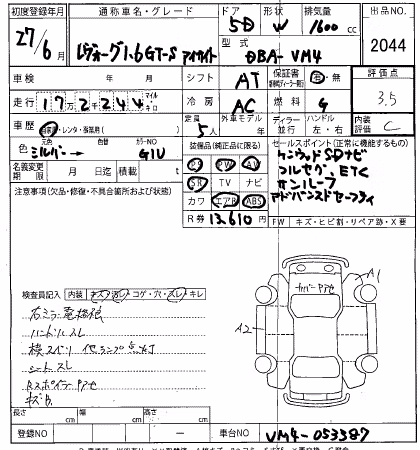 初度登録年月 通称車名・グレード ドア 形状 排気量 出品NO
27/6月 レヴォーグ1.6GT-S アイサイト 5D W 1600cc 2044
型式 DBA-VM4
車検 年 月 シフト AT 保証書 有・無 評価点
走行 172244 マイル キロ 冷房 AC 燃料 G 3.5
車歴 自家用・レンタ・事業用( ) 定員 5人 外車モデル 年 ディーラー 並行 ハンドル 左・右 内装評価 C
色 元色 シルバー → 色替 カラーNO G1U
装備品(純正品に限る) セールスポイント(正常に機能するもの)
名義変更期限 月 日 積載 t
PS PW AW
SR TV ナビ
カワ エアB ABS
R券 13,610円
ケンウッドSDナビ
フルセグ、ETC
サンルーフ
アドバンスドセーフティ
注意事項(欠品・修復・不具合箇所および状態)
FW キズ・ヒビ割・リペア跡・X要
検査員記入 内装 キズ 汚レ コゲ・穴・スレ キレ
右ミラー電格
ハンドルスレ
シートスレ
Rスポイラーアワセ
キズ有
A1
A2
カバーアワセ
長さ cm 幅 cm 高さ cm
登録NO ー 車台NO VM4-053387